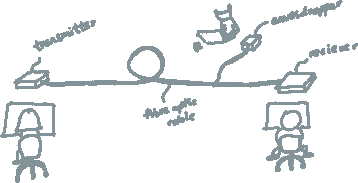 transmitter
eavesdropper
receiver
fibre optic
cable